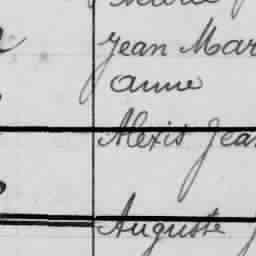 Jean Mar
anne
Alexis Jean
Auguste J